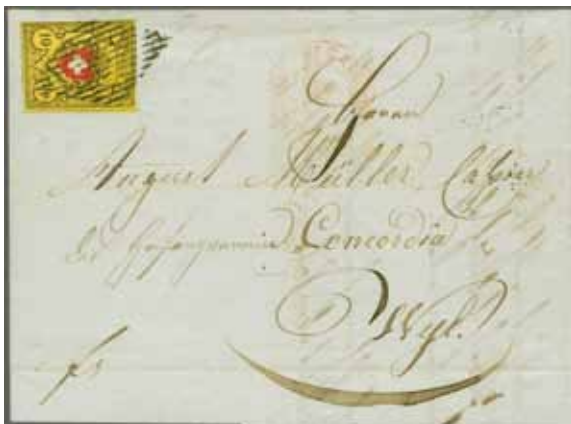 10
Herrn
August Müller, Cassier
des Gesangverein Concordia
Wyl.